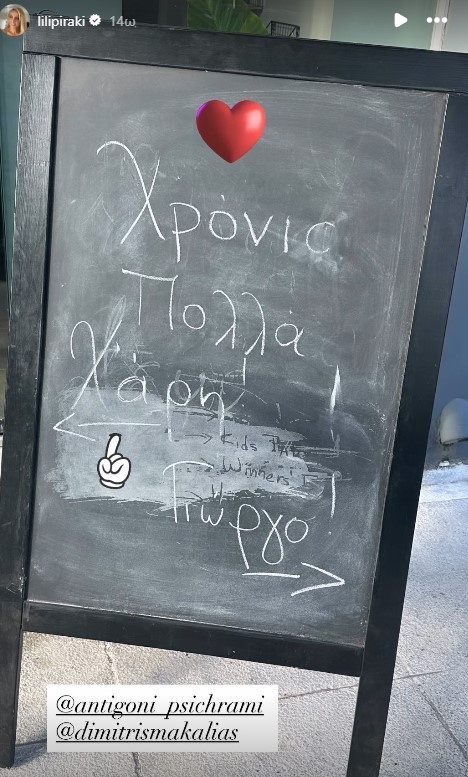 lilipiraki 14ω
Χρόνια
Πολλά
Χάρη!
Kids
Winners
Γιώργο!
@antigoni_psichrami
@dimitrismakalias